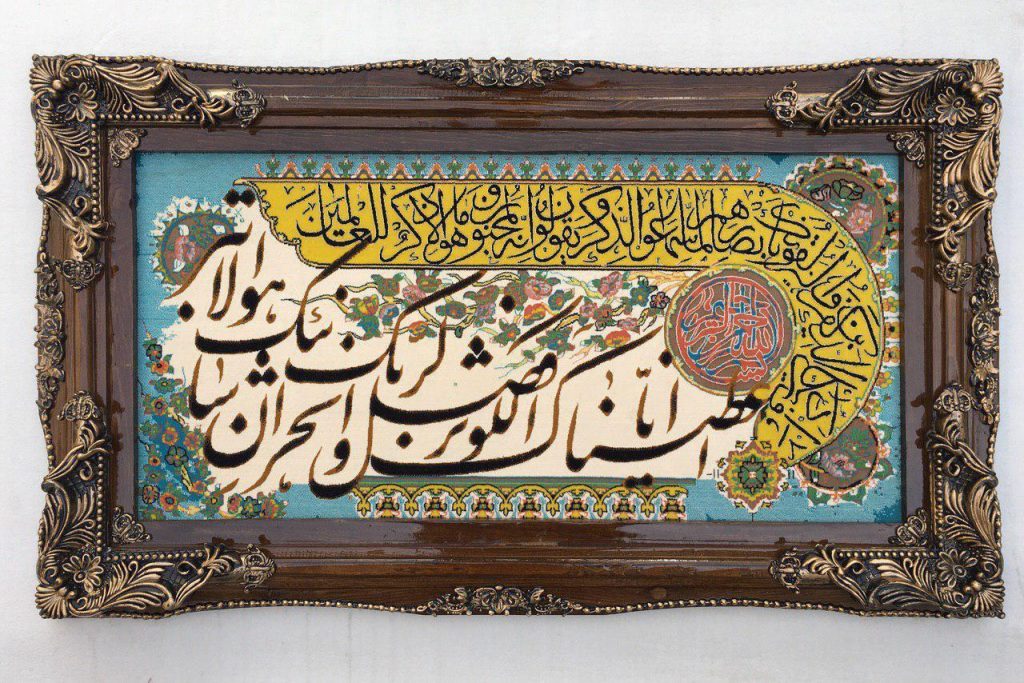 بسم الله الرحمن الرحیم
وان یکاد الذین کفروا لیزلقونک بابصارهم لما سمعوا الذکر و یقولون انه لمجنون و ما هو الا ذکر للعالمین
انا اعطیناک الکوثر فصل لربک وانحر ان شانئک هو الابتر